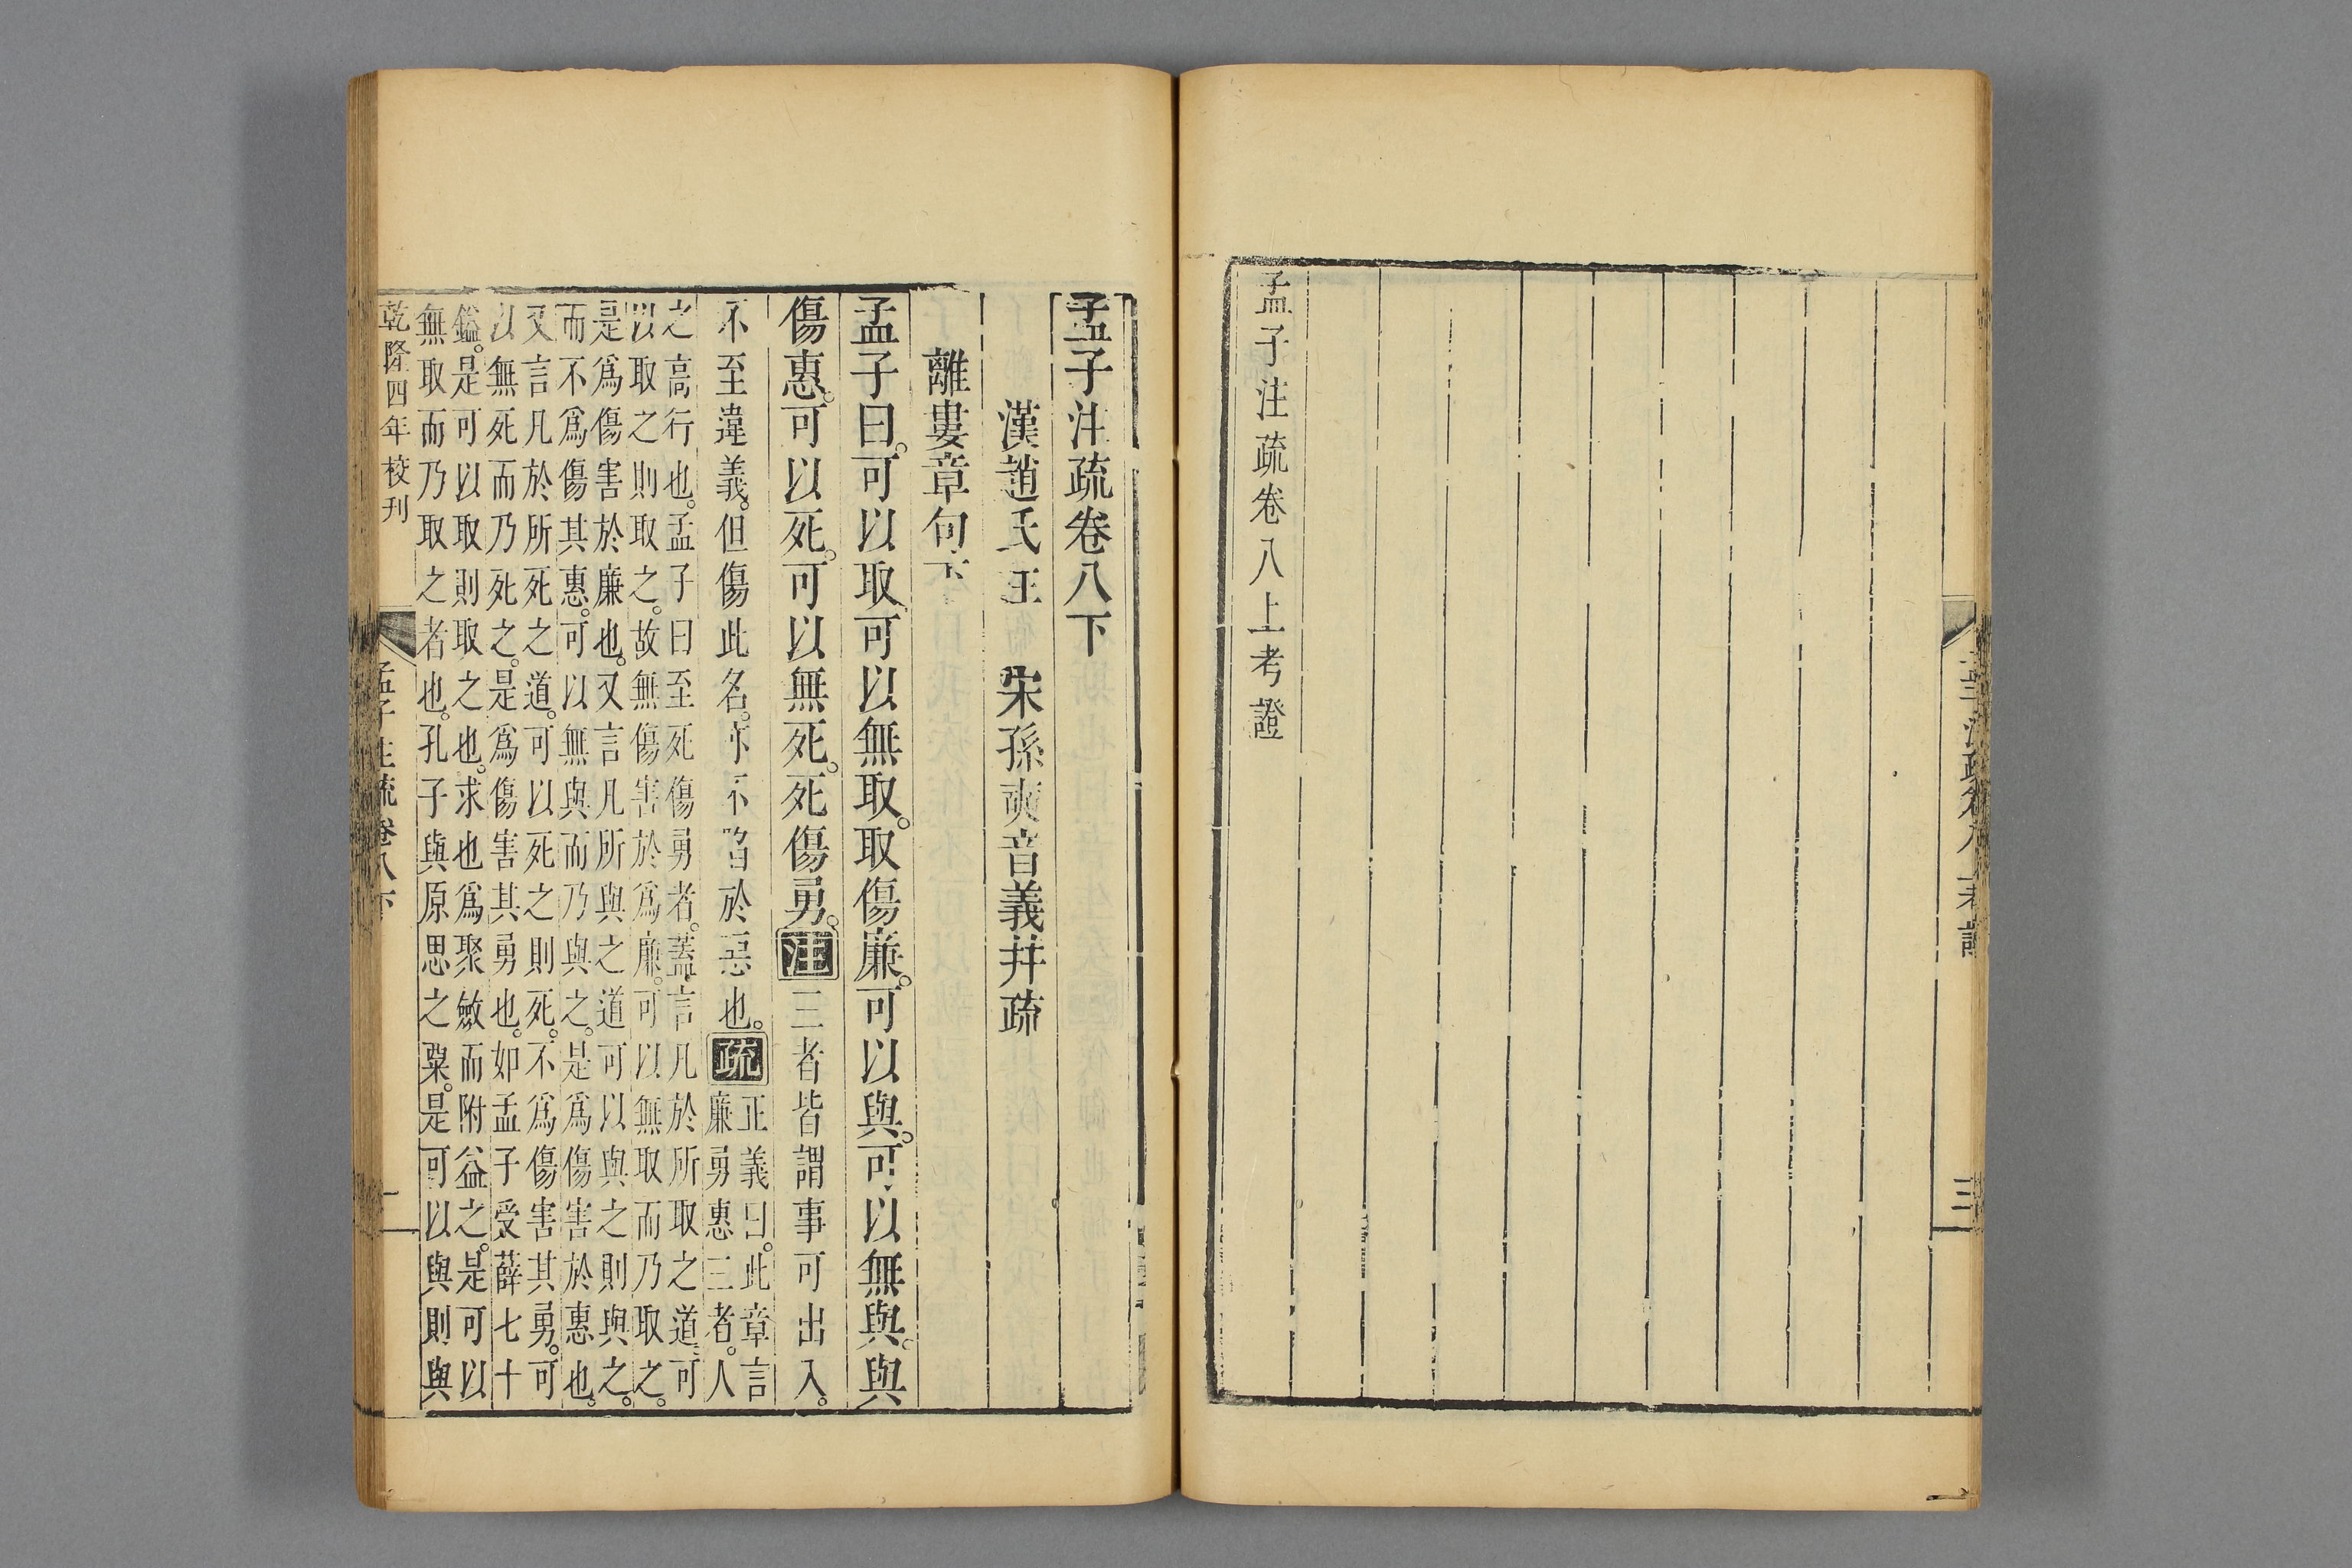 孟子注疏卷八上考證
三
孟子注疏卷八上考證
孟子注疏卷八下
漢趙氏注 宋孫奭音義幷疏
離婁章句下
孟子曰。可以取。可以無取。取傷廉。可以與。可以無與。與
傷惠。可以死。可以無死。死傷勇。注三者皆謂事可出入。
不至違義。但傷此名。亦不陷於惡也。疏正義曰。此章言
廉勇惠三者。人
之高行也。孟子曰至死傷勇者。蓋言凡於所取之道。可
以取之則取之。故無傷害於爲廉。可以無取而乃取之。
是爲傷害於廉也。又言凡所與之道可以與之則與之。
而不爲傷其惠。可以無與而乃與之。是爲傷害於惠也。
又言凡於所死之道。可以死之則死。不爲傷害其勇。可
以無死而乃死之。是爲傷害其勇也。如孟子受薛七十
鎰。是可以取則取之也。求也爲聚斂而附益之。是可以
無取而乃取之者也。孔子與原思之粟。是可以與則與
乾隆四年校刊
孟子注疏卷八下